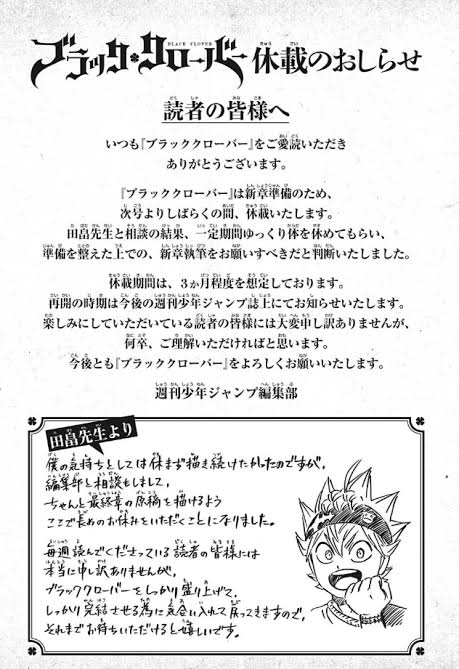 ブラック・クローバー 休載のおしらせ
BLACK CLOVER
読者の皆様へ
いつも『ブラッククローバー』をご愛読いただき
ありがとうございます。
『ブラッククローバー』は新章準備のため、
次号よりしばらくの間、休載いたします。
田畠先生と相談の結果、一定期間ゆっくり体を休めてもらい、
準備を整えた上での、新章執筆をお願いすべきだと判断いたしました。
休載期間は、3か月程度を想定しております。
再開の時期は今後の週刊少年ジャンプ誌上にてお知らせいたします。
楽しみにしていただいている読者の皆様には大変申し訳ありませんが、
何卒、ご理解いただければと思います。
今後とも『ブラッククローバー』をよろしくお願いいたします。
週刊少年ジャンプ編集部
田畠先生より
僕の気持ちとしては休まず描き続けたかったのですが、
編集部と相談もしまして、
ちゃんと最終章の原稿を描けるよう
ここで長めのお休みをいただくことになりました。
毎週読んでくださっている読者の皆様には
本当に申し訳ありませんが、
ブラッククローバーをしっかり盛り上げて、
しっかり完結させる為に気合い入れて戻ってきますので、
それまでお待ちいただけると嬉しいです。